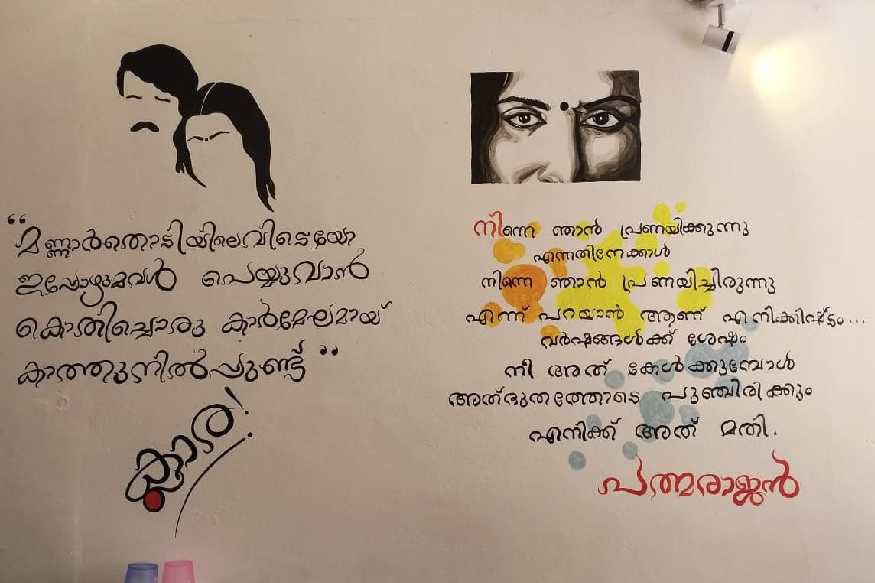 “മണ്ണാർതൊടിയിലെവിടെയോ
ഇപ്പോഴുമവൾ പെയ്യുവാൻ
കൊതിച്ചൊരു കാർമേഘമായ്
കാത്തുനിൽപ്പുണ്ട്”
ക്ലാര!
നിന്നെ ഞാൻ പ്രണയിക്കുന്നു
എന്നതിനേക്കാൾ
നിന്നെ ഞാൻ പ്രണയിച്ചിരുന്നു
എന്ന് പറയാൻ ആണ് എനിക്കിഷ്ടം...
വർഷങ്ങൾക്ക് ശേഷം
നീ അത് കേൾക്കുമ്പോൾ
അത്ഭുതത്തോടെ പുഞ്ചിരിക്കും
എനിക്ക് അത് മതി.
പത്മരാജൻ